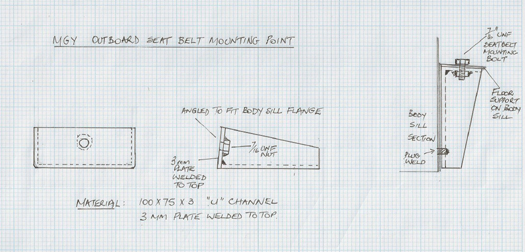 MGY OUTBOARD SEAT BELT MOUNTING POINT
7/16" UNF
SEATBELT
MOUNTING
BOLT
ANGLED TO FIT BODY SILL FLANGE
FLOOR
SUPPORT
ON BODY
SILL
BODY
SILL
SECTION
7/16 UNF
NUT
3mm
PLATE
WELDED
TO TOP
PLUG
WELD
MATERIAL: 100 X 75 X 3 "U" CHANNEL
3 MM PLATE WELDED TO TOP